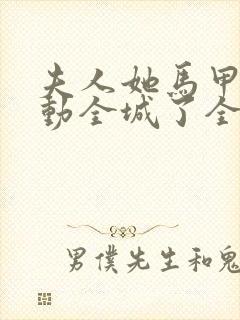 夫人她馬甲
動全城了全
男僕先生和鬼